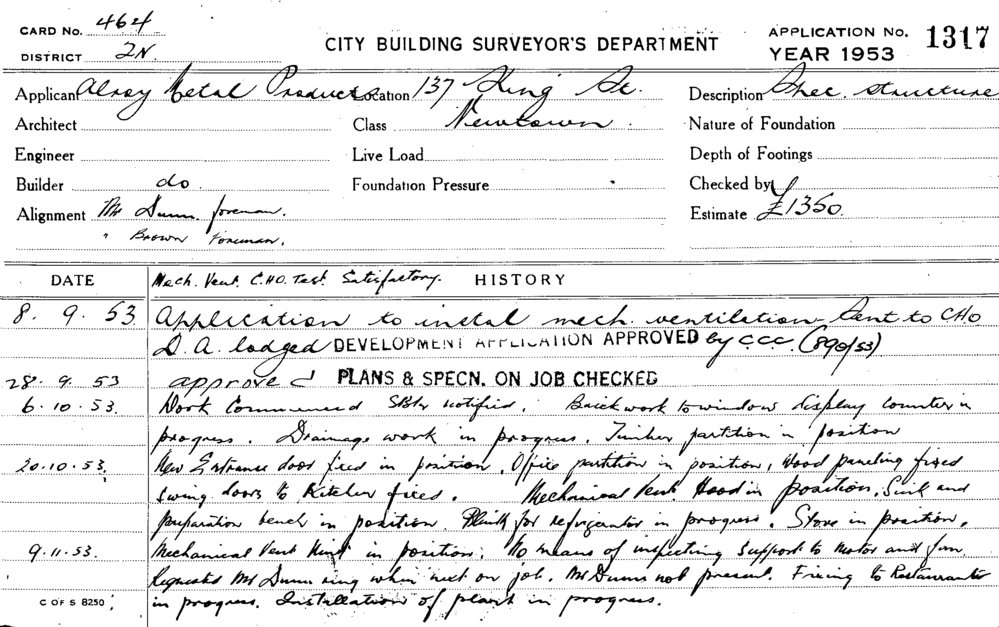 CARD No. 464
DISTRICT 2N.
CITY BUILDING SURVEYOR'S DEPARTMENT
APPLICATION No. 1317
YEAR 1953
Applicant Metal Products Location 137 King St. Description structure
Architect Class Newtown. Nature of Foundation
Engineer Live Load Depth of Footings
Builder do Foundation Pressure Checked by
Alignment Mr Dunn. foreman. Estimate £1350.
" Brown Foreman.
DATE Mech. Vent. C.H.O. Test. Satisfactory. HISTORY
8. 9. 53 Application to instal mech. ventilation - Sent to CHO
D.A. lodged DEVELOPMENT APPLICATION APPROVED by C.C.C. (890/53)
28. 9. 53 approved PLANS & SPECN. ON JOB CHECKED
6. 10. 53. Work Commenced notified. Brickwork to window display counter in
progress. Drainage work in progress. Timber partition in position
20. 10. 53. New Entrance door fixed in position. Office partition in position, Wood paneling fixed
Swing doors to Kitchen fixed. Mechanical Vent Hood in position, Sink and
preparation bench in position. Plinth for refrigerator in progress. Stove in position.
9. 11. 53. Mechanical Vent in position. No means of inspecting support to motor and fan
Requested Mr Dunn ring when next on job. Mr Dunn not present. Fixing to Restaurant
in progress. Installation of plant in progress.
C OF S 8250